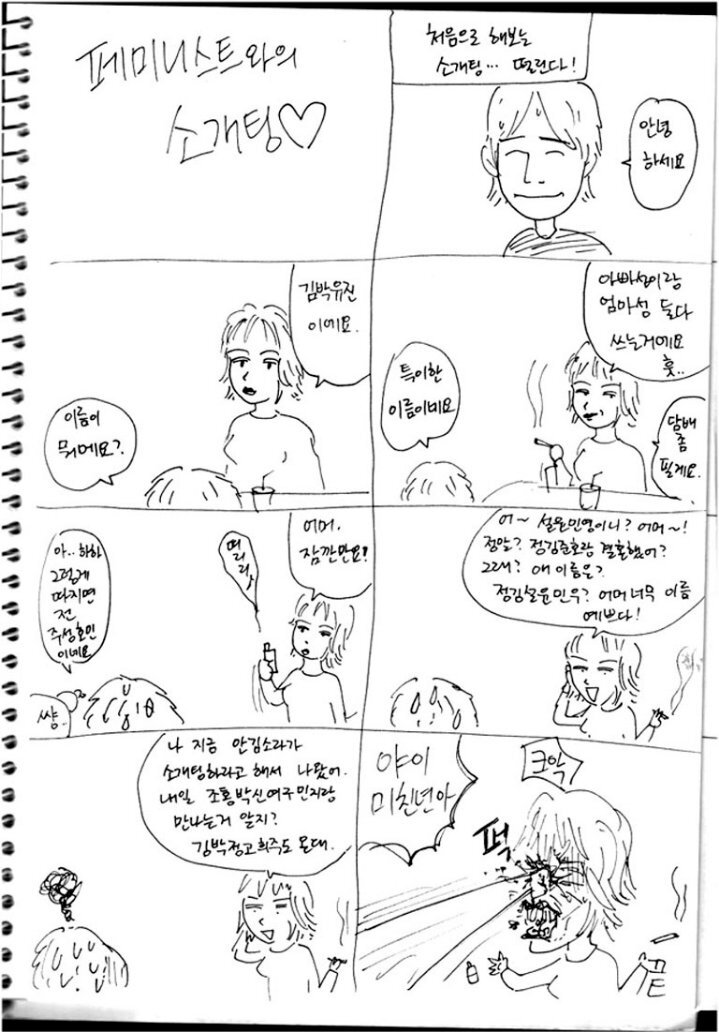 페미니스트와의
소개팅♡
처음으로 해보는
소개팅... 떨린다!
안녕
하세요
김박유진
이에요.
이름이
뭐예요?
아빠성이랑
엄마성 둘다
쓰는거예요
훗..
특이한
이름이네요
담배
좀
필게요.
아.. 하하
그렇게
따지면
전
주성호민
이네요
쌍..
어머,
잠깐만요!
띠리리
어~ 설윤민영이니? 어머~!
정말? 정김준호랑 결혼했어?
그래? 애 이름은?
정김설윤민우? 어머 너무 이름
예쁘다!
나 지금 안김소라가
소개팅하라고 해서 나왔어.
내일 조홍박신여구민지랑
만나는거 알지?
김박정고희주도 온대.
야이
미친년아
크악
퍽
끝